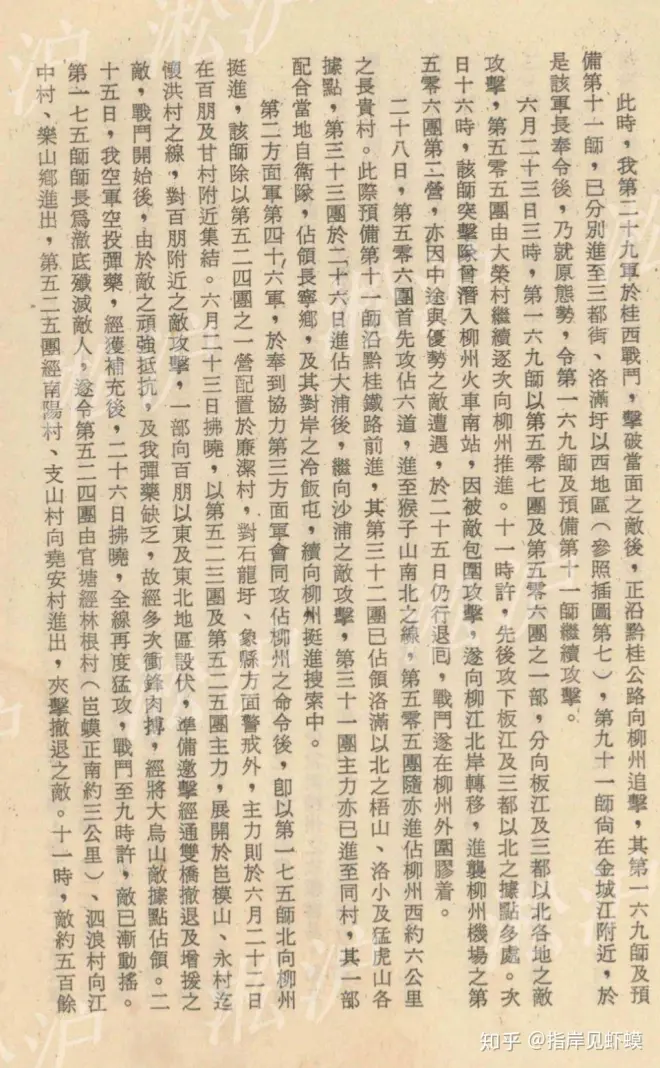 此時，我第二十九軍於桂西戰鬥，擊破當面之敵後，正沿黔桂公路向柳州追擊，其第一六九師及預
備第十一師，已分別進至三都街、洛滿圩以西地區（參照插圖第七），第九十一師尙在金城江附近，於
是該軍長奉令後，乃就原態勢，令第一六九師及預備第十一師繼續攻擊。
六月二十三日三時，第一六九師以第五零七團及第五零六團之一部，分向板江及三都以北各地之敵
攻擊，第五零五團由大榮村繼續逐次向柳州推進。十一時許，先後攻下板江及三都以北之據點多處。次
日十六時，該師突擊隊曾潛入柳州火車南站，因被敵包圍攻擊，遂向柳江北岸轉移，進襲柳州機場之第
五零六團第二營，亦因中途與優勢之敵遭遇，於二十五日仍行退囘，戰鬥遂在柳州外圍膠着。
二十八日，第五零六團首先攻佔六道，進至猴子山南北之線，第五零五團隨亦進佔柳州西約六公里
之長貴村。此際預備第十一師沿黔桂鐵路前進，其第三十二團已佔領洛滿以北之梧山、洛小及猛虎山各
據點，第三十三團於二十六日進佔大浦後，繼向沙浦之敵攻擊，第三十一團主力亦已進至同村，其一部
配合當地自衛隊，佔領長寧鄉，及其對岸之冷飯屯，續向柳州挺進搜索中。
第二方面軍第四十六軍，於奉到協力第三方面軍會同攻佔柳州之命令後，卽以第一七五師北向柳州
挺進，該師除以第五二四團之一營配置於廉潔村，對石龍圩、象縣方面警戒外，主力則於六月二十二日
在百朋及甘村附近集結。六月二十三日拂曉，以第五二三團及第五二五團主力，展開於岜模山、永村迄
懷洪村之線，對百朋附近之敵攻擊，一部向百朋以東及東北地區設伏，準備邀擊經通雙橋撤退及增援之
敵，戰鬥開始後，由於敵之頑強抵抗，及我彈藥缺乏，故經多次衝鋒肉搏，經將大烏山敵據點佔領。二
十五日，我空軍空投彈藥，經獲補充後，二十六日拂曉，全線再度猛攻，戰鬥至九時許，敵已漸動搖。
第一七五師師長爲澈底殲滅敵人，遂令第五二四團由官塘經林根村（岜蟆正南約三公里）、泗浪村向江
中村、樂山鄉進出，第五二五團經南陽村、支山村向堯安村進出，夾擊撤退之敵。十一時，敵約五百餘
知乎 @指岸见虾蟆